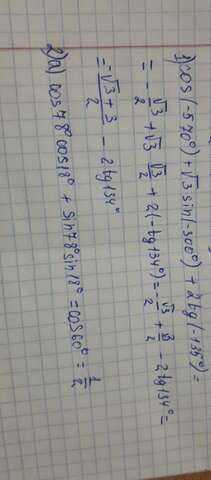 1) cos(-570°) + √3 sin(-300°) + 2 tg(-135°) =
= -√3/2 + √3 · √3/2 + 2(-tg 134°) = -√3/2 + 3/2 - 2 tg 134° =
= -√3 + 3/2 - 2 tg 134°
2) a) cos 78° cos 18° + sin 78° sin 18° = cos 60° = 1/2